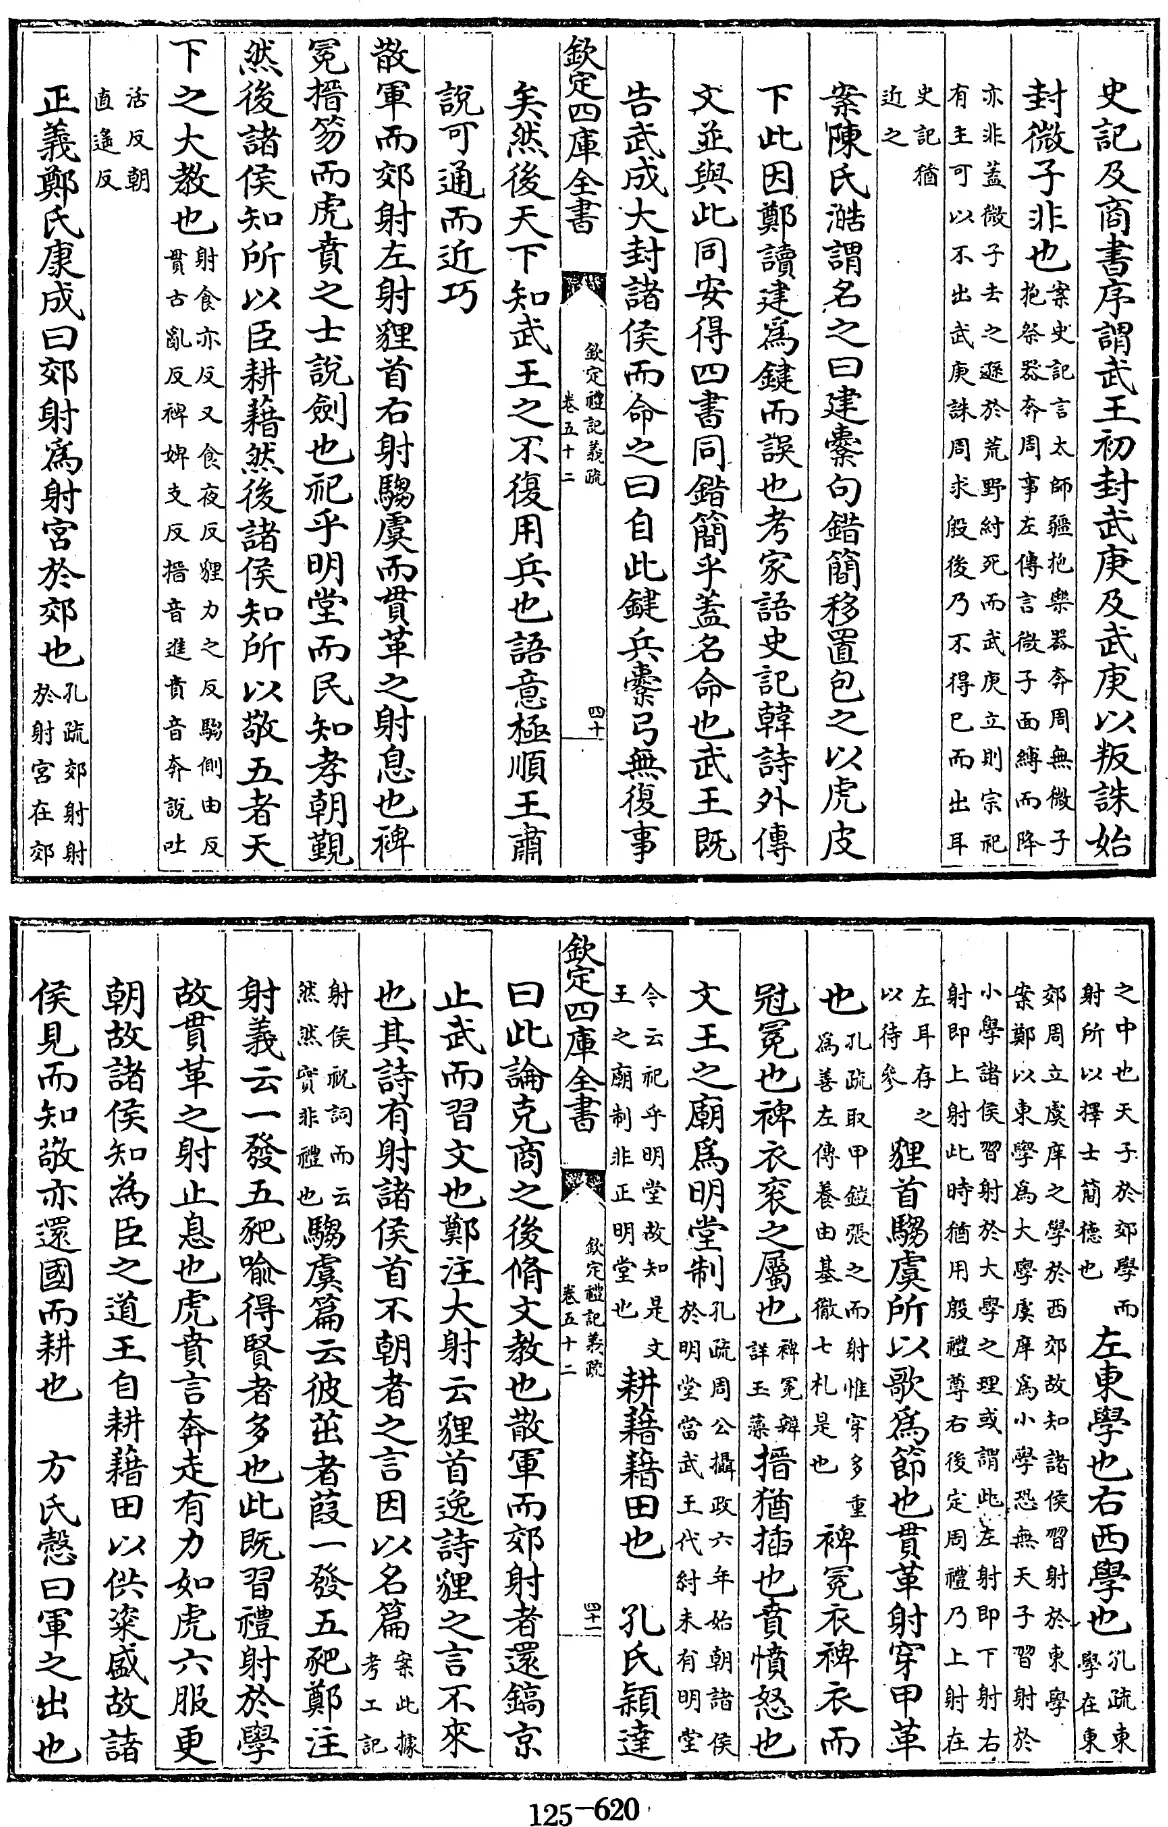 史記及商書序謂武王初封武庚及武庚以叛誅始
封微子非也案史記言太師疆抱樂器奔周無微子抱祭器奔周事左傳言微子面縛而降
亦非蓋微子去之遯於荒野紂死而武庚立則宗祀有主可以不出武庚誅周求殷後乃不得已而出耳
史記猶近之
案陳氏澔謂名之曰建櫜句錯簡移置包之以虎皮
下此因鄭讀建爲鍵而誤也考家語史記韓詩外傳
文並與此同安得四書同錯簡乎蓋名命也武王既
告武成大封諸侯而命之曰自此鍵兵櫜弓無復事
欽定四庫全書
欽定禮記義疏
卷五十二
四十
矣然後天下知武王之不復用兵也語意極順王肅
說可通而近巧
散軍而郊射左射貍首右射騶虞而貫革之射息也裨
冕搢笏而虎賁之士說劍也祀乎明堂而民知孝朝覲
然後諸侯知所以臣耕藉然後諸侯知所以敬五者天
下之大教也射食亦反又食夜反貍力之反騶側由反貫古亂反裨婢支反搢音進賁音奔說吐
活反朝直遙反
正義鄭氏康成曰郊射爲射宮於郊也孔疏郊射射於射宮在郊
之中也天子於郊學而射所以擇士簡德也左東學也右西學也孔疏東學在東
郊周立虞庠之學於西郊故知諸侯習射於東學案鄭以東學爲大學虞庠爲小學恐無天子習射於
小學諸侯習射於大學之理或謂此左射即下射右射即上射此時猶用殷禮尊右後定周禮乃上射在
左耳存之以待參貍首騶虞所以歌爲節也貫革射穿甲革
也孔疏取甲鎧張之而射惟穿多重爲善左傳養由基徹七札是也裨冕衣裨衣而
冠冕也裨衣衮之屬也裨冕辨詳玉藻搢猶插也賁憤怒也
文王之廟爲明堂制孔疏周公攝政六年始朝諸侯於明堂當武王代紂未有明堂
今云祀乎明堂故知是文王之廟制非正明堂也耕藉藉田也　孔氏穎達
欽定四庫全書
欽定禮記義疏
卷五十二
四十一
曰此論克商之後脩文教也散軍而郊射者還鎬京
止武而習文也鄭注大射云貍首逸詩貍之言不來
也其詩有射諸侯首不朝者之言因以名篇案此據考工記
射侯祝詞而云然然實非禮也騶虞篇云彼茁者葭一發五豝鄭注
射義云一發五豝喻得賢者多也此既習禮射於學
故貫革之射止息也虎賁言奔走有力如虎六服更
朝故諸侯知為臣之道王自耕藉田以供粢盛故諸
侯見而知敬亦還國而耕也　方氏慤曰軍之出也
125-620